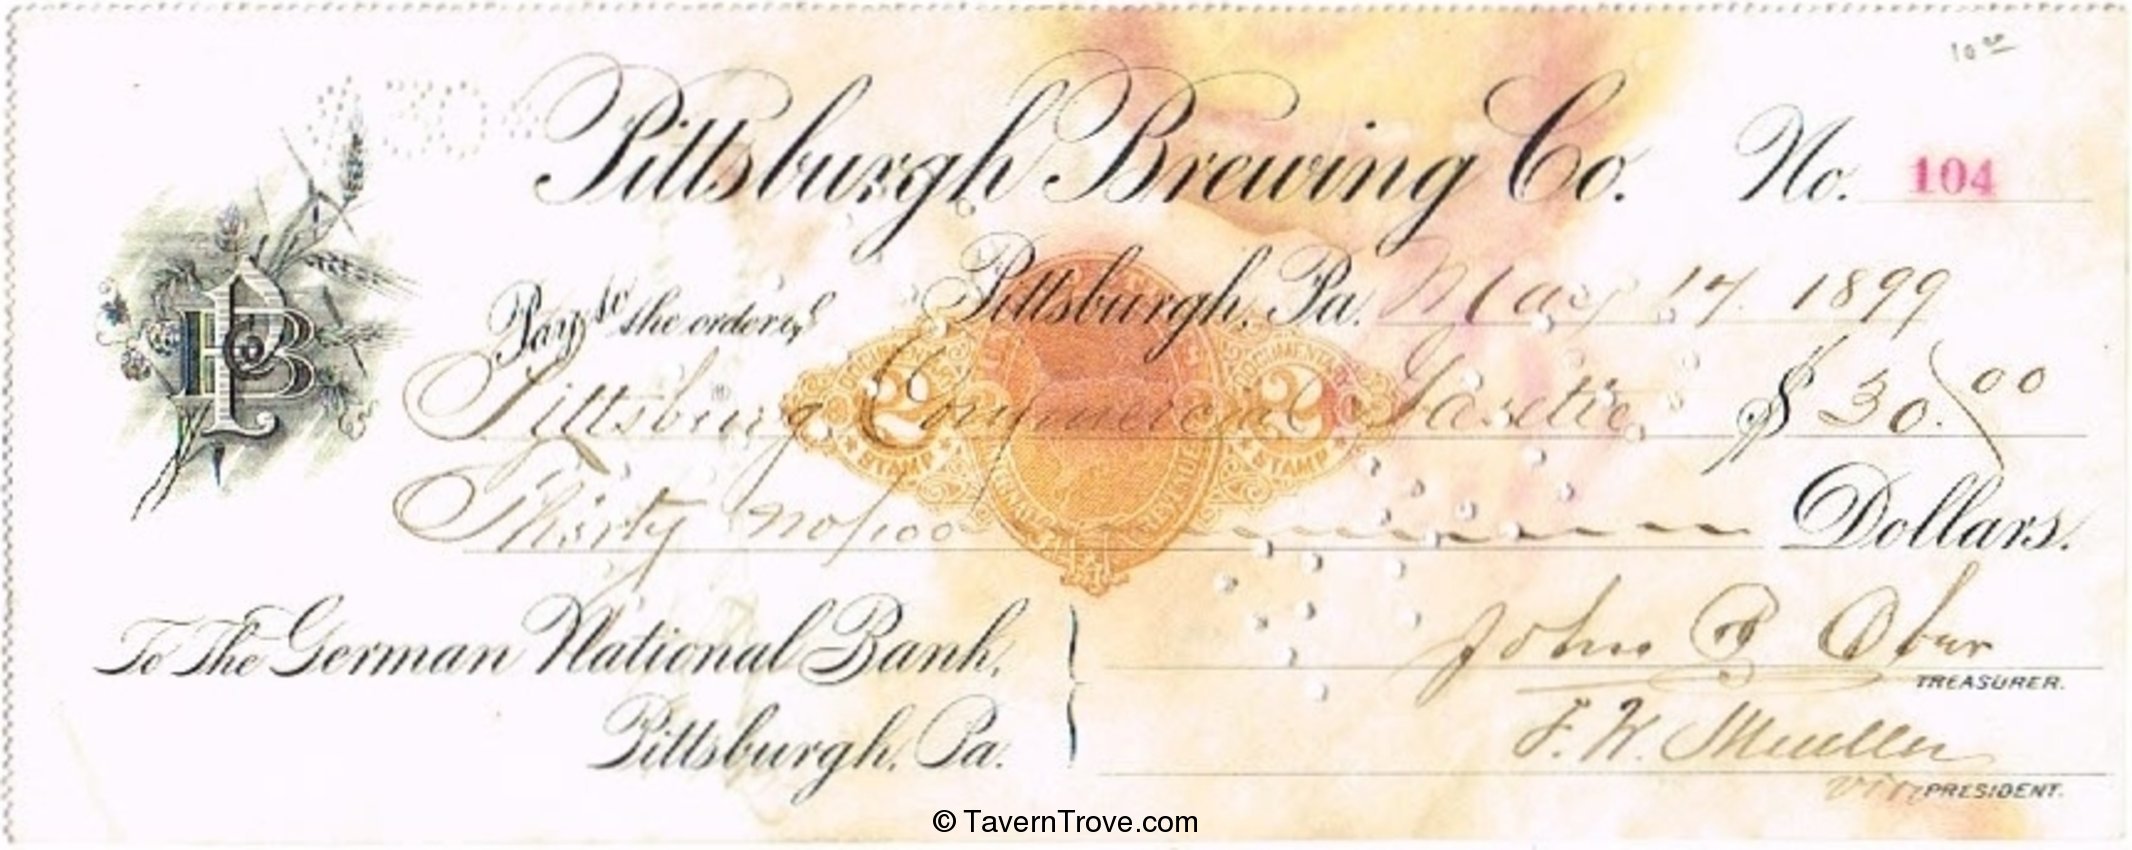 10 00
$30$
Pittsburgh Brewing Co. No. 104
Pittsburgh, Pa. May 17. 1899
Pay to the order of
Pittsburg Commercial Gazette $ 30.00
Thirty no/100 Dollars.
DOCUMENTARY 2 STAMP DOCUMENTARY 2 STAMP
To The German National Bank,
Pittsburgh, Pa.
John P Ober
TREASURER.
F. W. Mueller
vice PRESIDENT.
PBCo
© TavernTrove.com